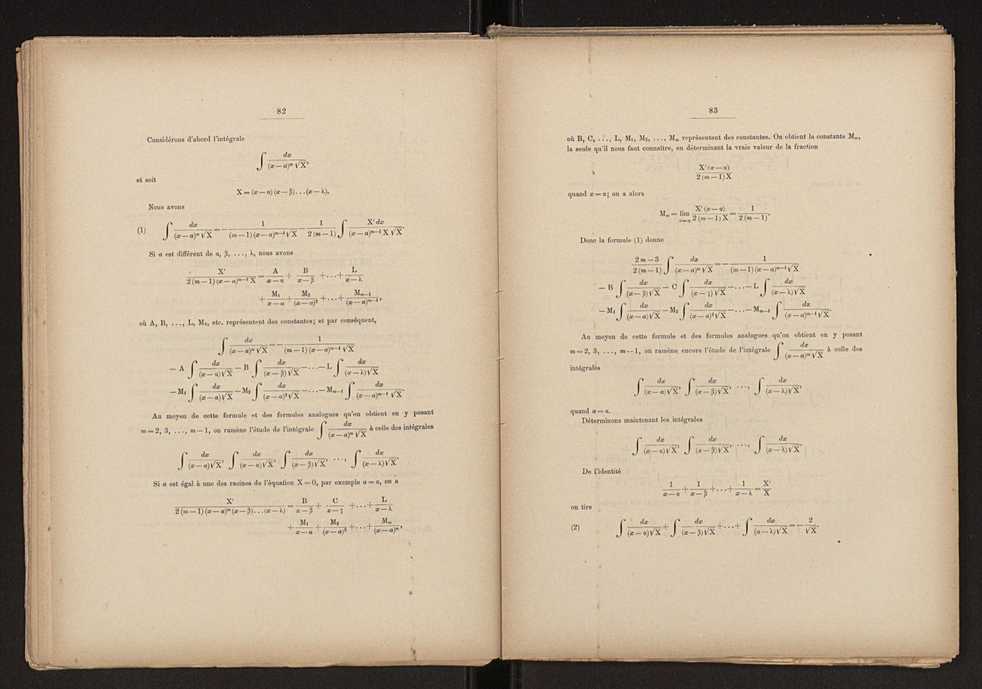 82
Considérons d'abord l'intégrale
∫ dx / ((x—a)^m √X),
et soit
X = (x—α)(x—β)...(x—λ).
Nous avons
(1) ∫ dx / ((x—a)^m √X) = — 1 / ((m—1)(x—a)^{m—1} √X) — 1 / (2(m—1)) ∫ X' dx / ((x—a)^{m—1} X √X)
Si a est différent de α, β, ..., λ, nous avons
X' / (2(m—1)(x—a)^{m—1} X) = A/(x—α) + B/(x—β) + ... + L/(x—λ)
+ M₁/(x—a) + M₂/(x—a)² + ... + M_{m—1}/(x—a)^{m—1},
où A, B, ..., L, M₁, etc. représentent des constantes; et par conséquent,
∫ dx / ((x—a)^m √X) = — 1 / ((m—1)(x—a)^{m—1} √X)
— A ∫ dx / ((x—α)√X) — B ∫ dx / ((x—β)√X) — ... — L ∫ dx / ((x—λ)√X)
— M₁ ∫ dx / ((x—a)√X) — M₂ ∫ dx / ((x—a)²√X) — ... — M_{m—1} ∫ dx / ((x—a)^{m—1} √X).
Au moyen de cette formule et des formules analogues qu'on obtient en y posant
m = 2, 3, ..., m—1, on ramène l'étude de l'intégrale ∫ dx / ((x—a)^m √X) à celle des intégrales
∫ dx / ((x—a)√X), ∫ dx / ((x—α)√X), ∫ dx / ((x—β)√X), ..., ∫ dx / ((x—λ)√X).
Si a est égal à une des racines de l'équation X = 0, par exemple a = α, on a
X' / (2(m—1)(x—α)^m (x—β)...(x—λ)) = B/(x—β) + C/(x—γ) + ... + L/(x—λ)
+ M₁/(x—α) + M₂/(x—α)² + ... + M_m/(x—α)^m,
83
où B, C, ..., L, M₁, M₂, ..., M_m représentent des constantes. On obtient la constante M_m,
la seule qu'il nous faut connaître, en déterminant la vraie valeur de la fraction
X'(x—α) / (2(m—1)X)
quand x = α; on a alors
M_m = lim_{x=α} X'(x—α) / (2(m—1)X) = 1 / (2(m—1)).
Donc la formule (1) donne
(2m—3) / (2(m—1)) ∫ dx / ((x—α)^m √X) = — 1 / ((m—1)(x—α)^{m—1} √X)
— B ∫ dx / ((x—β)√X) — C ∫ dx / ((x—γ)√X) — ... — L ∫ dx / ((x—λ)√X)
— M₁ ∫ dx / ((x—α)√X) — M₂ ∫ dx / ((x—α)²√X) — ... — M_{m—1} ∫ dx / ((x—α)^{m—1} √X)
Au moyen de cette formule et des formules analogues qu'on obtient en y posant
m = 2, 3, ..., m—1, on ramène encore l'étude de l'intégrale ∫ dx / ((x—a)^m √X) à celle des
intégrales
∫ dx / ((x—α)√X), ∫ dx / ((x—β)√X), ..., ∫ dx / ((x—λ)√X),
quand a = α.
Déterminons maintenant les intégrales
∫ dx / ((x—α)√X), ∫ dx / ((x—β)√X), ..., ∫ dx / ((x—λ)√X).
De l'identité
1/(x—α) + 1/(x—β) + ... + 1/(x—λ) = X'/X
on tire
(2) ∫ dx / ((x—α)√X) + ∫ dx / ((x—β)√X) + ... + ∫ dx / ((x—λ)√X) = — 2/√X.